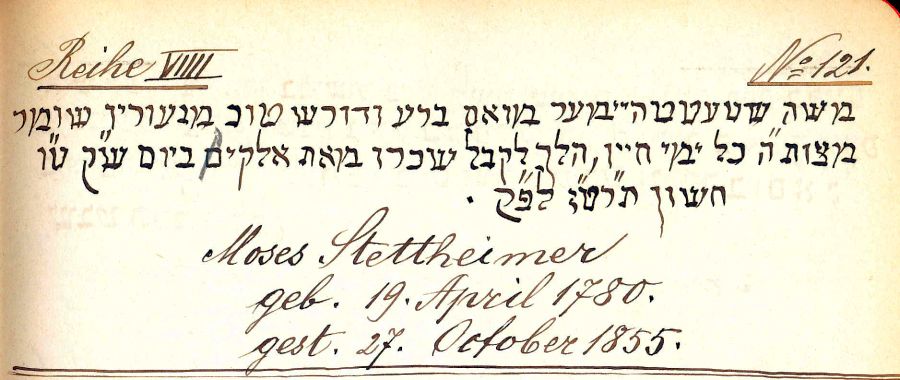 Reihe VIIII No 121.
משה שטעטטהיימער מואס ברע ודורש טוב מנעוריו שומר
מצות ה" כל ימי חייו, הלך לקבל שכרו מאת אלקים ביום ש"ק ט"ו
חשון תרט"ז לפ"ק .
Moses Stettheimer
geb. 19. April 1780.
gest. 27. October 1855.